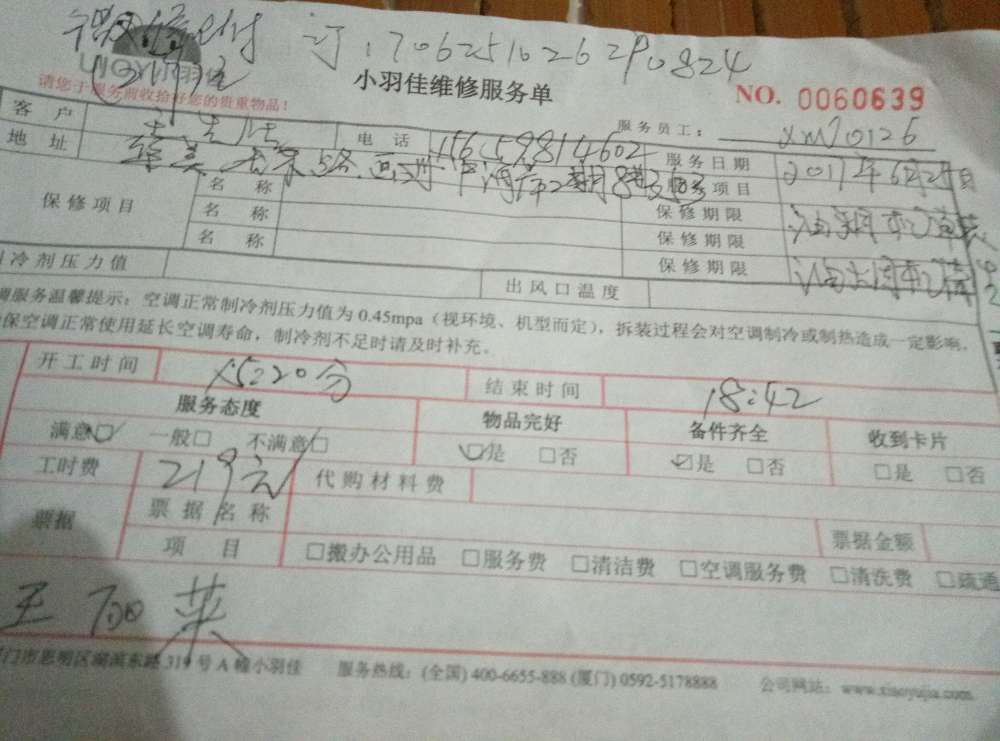 微信支付 订:706251026290824
小羽佳维修服务单 NO. 0060639
请您于服务前收拾好您的贵重物品!
服务员工: xm70126
客户 电话 15659814602 服务日期 2017年6月29日
地址 服务项目
保修项目 名称 保修期限
名称 保修期限
名称 保修期限
冷剂压力值 出风口温度
调服务温馨提示:空调正常制冷剂压力值为 0.45mpa(视环境、机型而定),拆装过程会对空调制冷或制热造成一定影响,
保空调正常使用延长空调寿命,制冷剂不足时请及时补充。
开工时间 15:20分 结束时间 18:42
服务态度 物品完好 备件齐全 收到卡片
满意☑ 一般□ 不满意□ ☑是 □否 ☑是 □否 □是 □否
工时费 219元 代购材料费
票据 票据名称 票据金额
项目 □搬办公用品 □服务费 □清洁费 □空调服务费 □清洗费 □疏通
王 英
门市思明区湖滨东路 319 号 A 幢小羽佳 服务热线:(全国) 400-6655-888 (厦门) 0592-5178888 公司网站:www.xiaoyujia.com